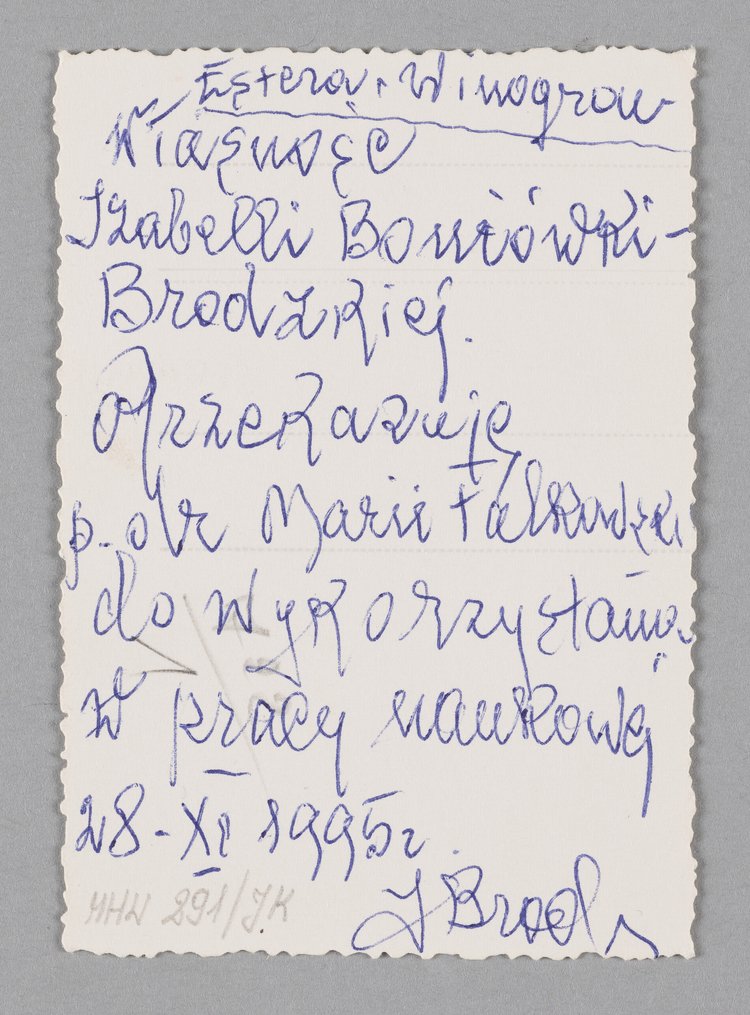 Estera Winogron
Własność
Izabelli Boniówki-
Brodzkiej.
Przekazuję
p. dr Marii Falkowski
do wykorzystania
w pracy naukowej
28-XI 1995r.
J Brod
MHW 291/JK